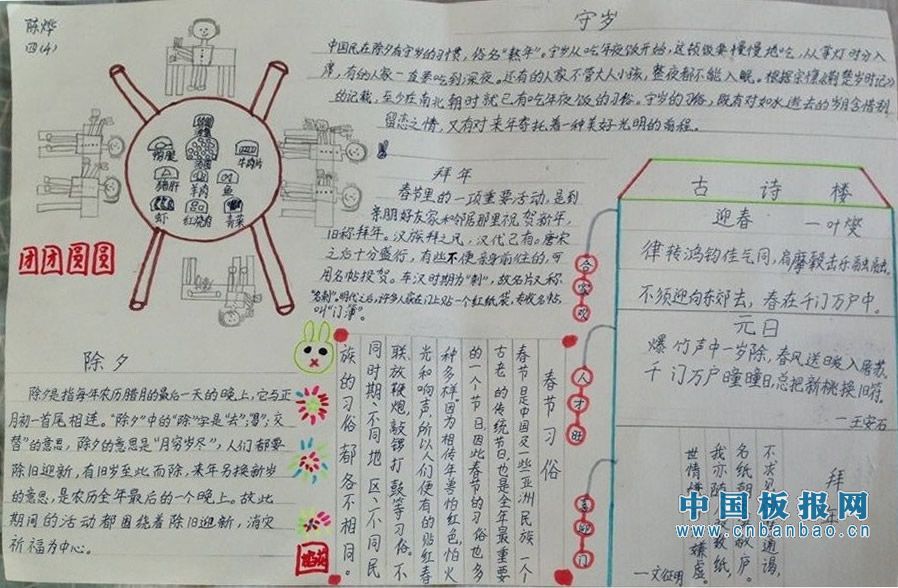 陈烨
四(4)
守岁
中国民在除夕有守岁的习惯,俗名“熬年”。守岁从吃年夜饭开始,这顿饭要慢慢地吃,从掌灯时分入
席,有的人家一直要吃到深夜。还有的人家不管大人小孩,整夜都不能入眠。根据宗懔《荆楚岁时记》
的记载,至少在南北朝时就已有吃年夜饭的习俗。守岁的习俗,既有对如水逝去的岁月含惜别
留恋之情,又有对来年寄托着一种美好光明的前程。
牛肉片
猪肝
羊肉
鱼
虾
红烧肉
青菜
团团圆圆
拜年
春节里的一项重要活动,是到
亲朋好友家和邻居那里祝贺新年,
旧称拜年。汉族拜年之风,汉代已有。唐宋
之后十分盛行,有些不便亲身前往的,可
用名帖投贺。东汉时期为“刺”,故名片又称
“名刺”。明代之后,许多人家在门上贴一个红纸袋,专收名帖,
叫“门簿”。
古诗楼
迎春 一叶燮
律转鸿钧佳气同,肩摩毂击乐融融。
不须迎向东郊去,春在千门万户中。
元日
爆竹声中一岁除,春风送暖入屠苏。
千门万户曈曈日,总把新桃换旧符。
一王安石
合家欢
除夕
除夕是指每年农历腊月的最后一天的晚上,它与正
月初一首尾相连。“除夕”中的“除”字是“去;易;交
替”的意思,除夕的意思是“月穷岁尽”,人们都要
除旧迎新,有旧岁至此而除,来年另换新岁
的意思,是农历全年最后的一个晚上。故此
期间的活动都围绕着除旧迎新,消灾
祈福为中心。
春节习俗
春节日是中国及一些亚洲民族一个
古老的传统节日,也是全年最重要
的一个节日,因此春节的习俗也多
种多样。因为相传年兽怕红色,怕火
光和响声,所以人们便有的贴红春
联、放鞭炮、敲锣打鼓等习俗。不
同时期、不同地区、不同民
族的习俗都各不相同。
拜年
不求见面惟通谒,
名纸朝来满敝庐。
我亦随人投数纸,
世情嫌简不嫌虚
一文征明
中国板报网
www.cnbanbao.cn